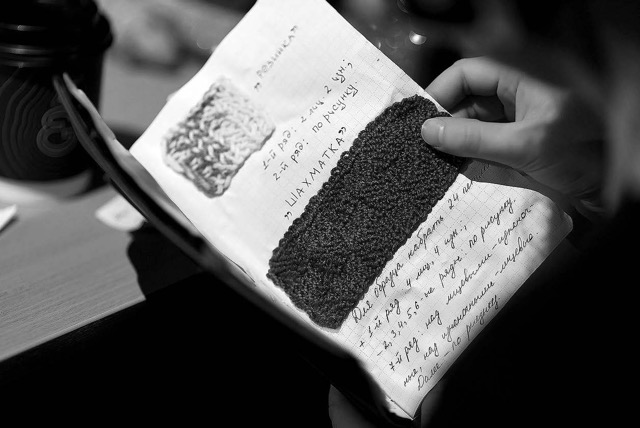 „Резинка”
1-й ряд: 2 лиц. 2 изн.;
2-й ряд: по рисунку.
„ШАХМАТКА”
Для образца набрать 24 петли
+ 1-й ряд 4 лиц, 4 изн.,
- 2,3,4,5,6-не ряды: по рисунку.
7-й ряд: над лицевыми - изнаноч-
ные, над изнаночными - лицевые.
Далее - по рисунку.